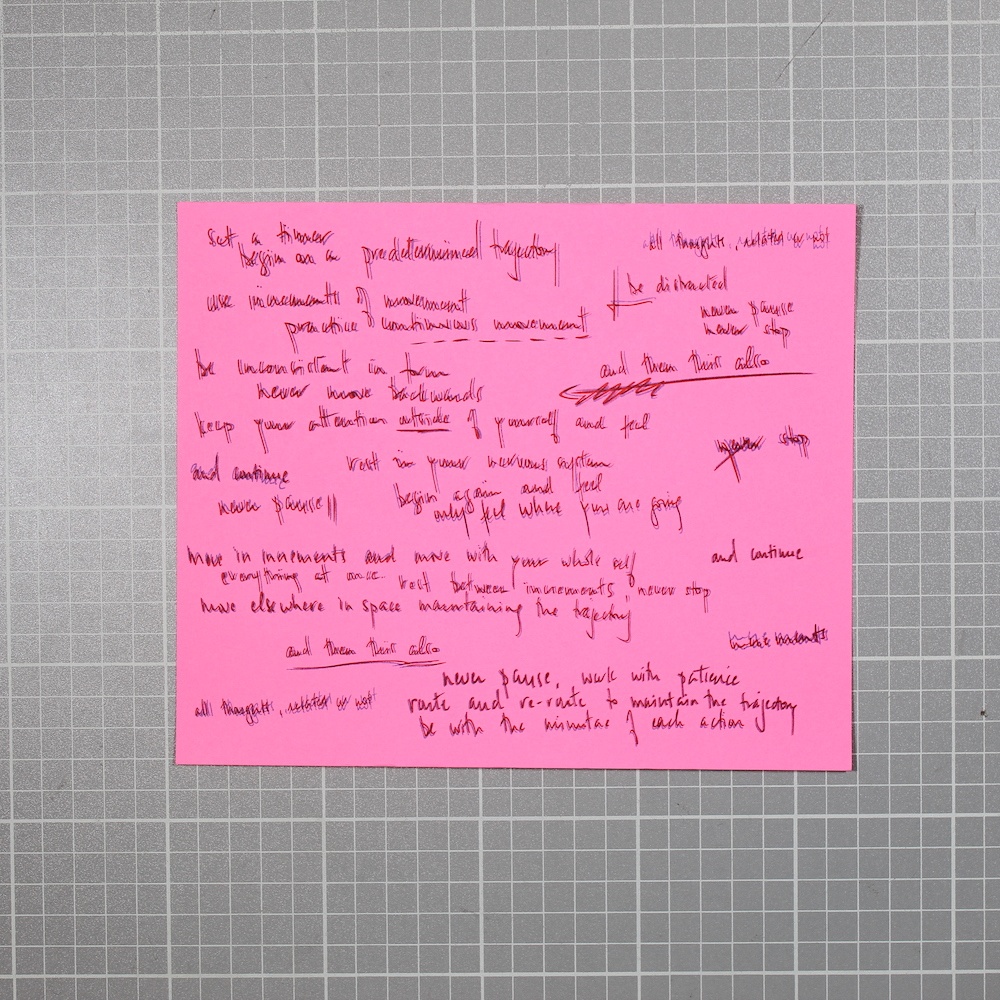 set a timer
all thoughts, related or not
begin on a predetermined trajectory
be distracted
use increments of movement
never pause
practice continuous movement
never stop
be inconsistent in form
and then this also
never move backwards
keep your attention outside of yourself and feel
never stop
and continue
rest in your nervous system
begin again and feel
never pause
only feel where you are going
move in increments and move with your whole self
and continue
everything at once. rest between increments, never stop
move elsewhere in space maintaining the trajectory
and then this also
never pause, work with patience
all thoughts, related or not
route and re-route to maintain the trajectory
be with the minutae of each action